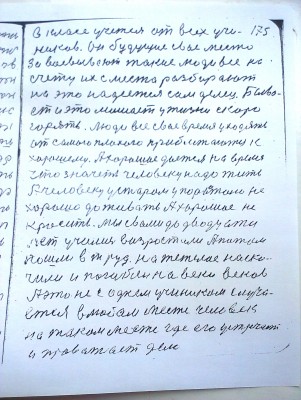 В класе учется от всех уче- 175
ников. Он будущие свае место
Завоевывают такие люде все на
счету их с места разбирают
на это надеется сам делец. Быва-
ет и это мишает у жизни скоро
гореть. Люди все свае время уходять
от самого плохого приближаются к
хорошему. А хорошае дается на время
Что значеть человеку надо жить
А человеку устаром у порть не
хорошо доживать А хорошае не
красить. Мы с вами до дводцати
лет учения вырастали А патом
пошли в труд. на тежолае наско-
чили и погибли на веки веков
А это не с одним учеником случа-
ется в любом месте человек
на таком месте где его встречают
и провожает дело